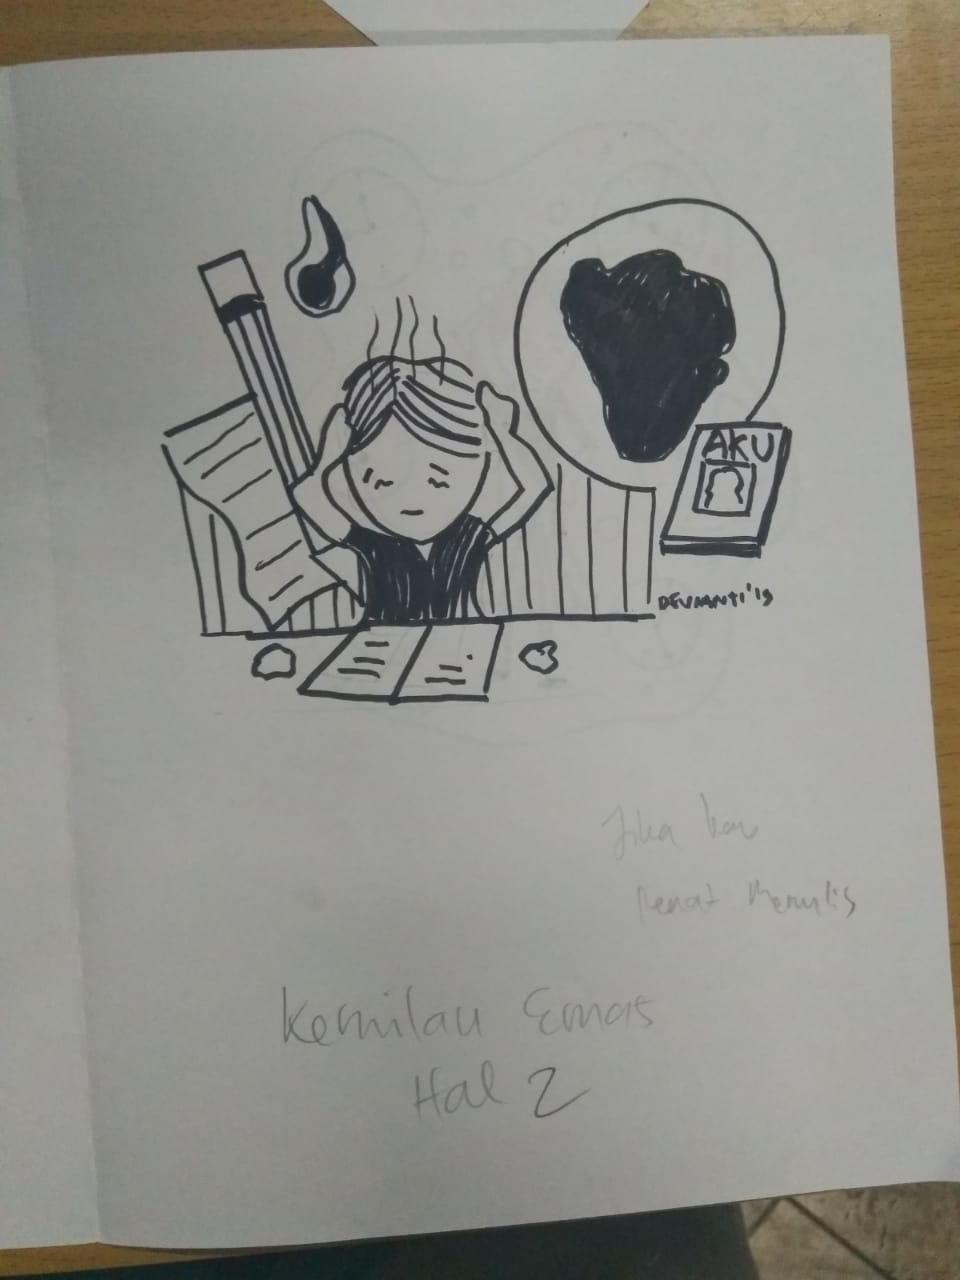 AKU
DEVIANTI'19
Jika kau
Penat Menulis
Kemilau Emas
Hal 2